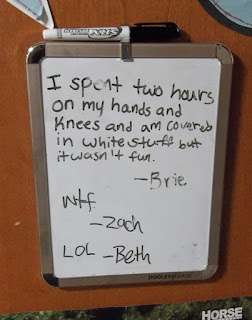 I spent two hours
on my hands and
knees and am covered
in white stuff but
it wasn't fun.
-Brie
wtf.
-Zach
LOL -Beth
HORSE